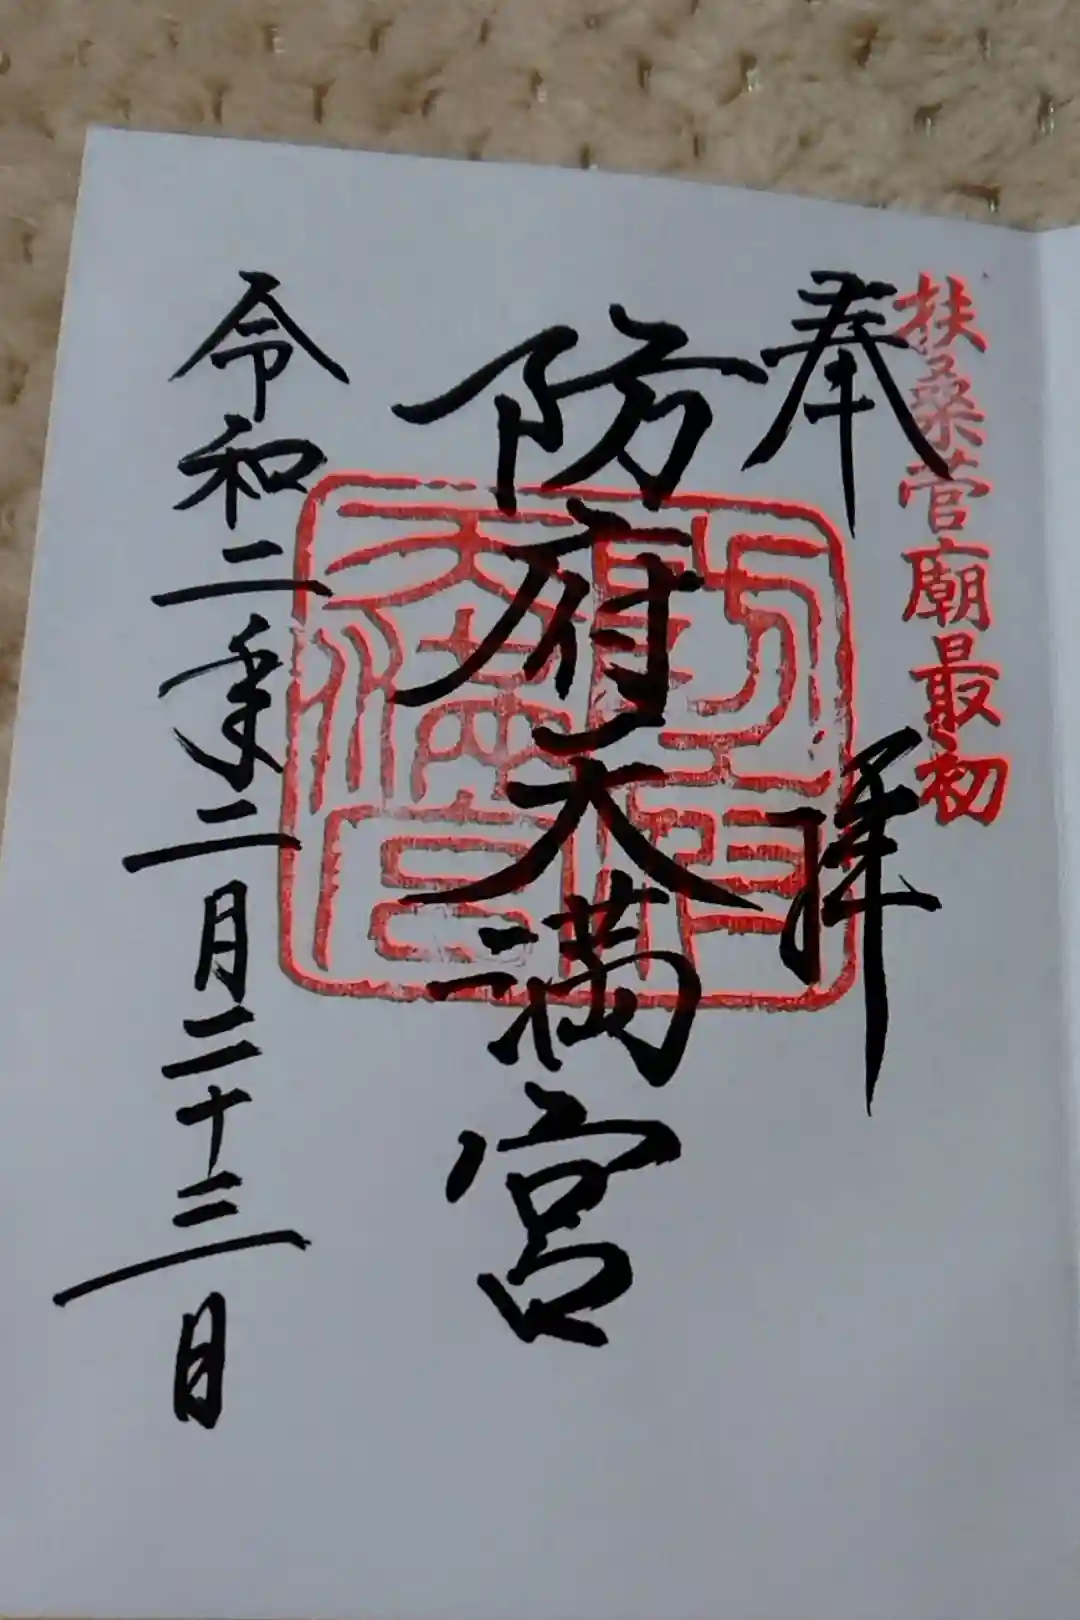 扶桑菅廟最初
奉拝
防府天満宮
令和二年二月二十三日